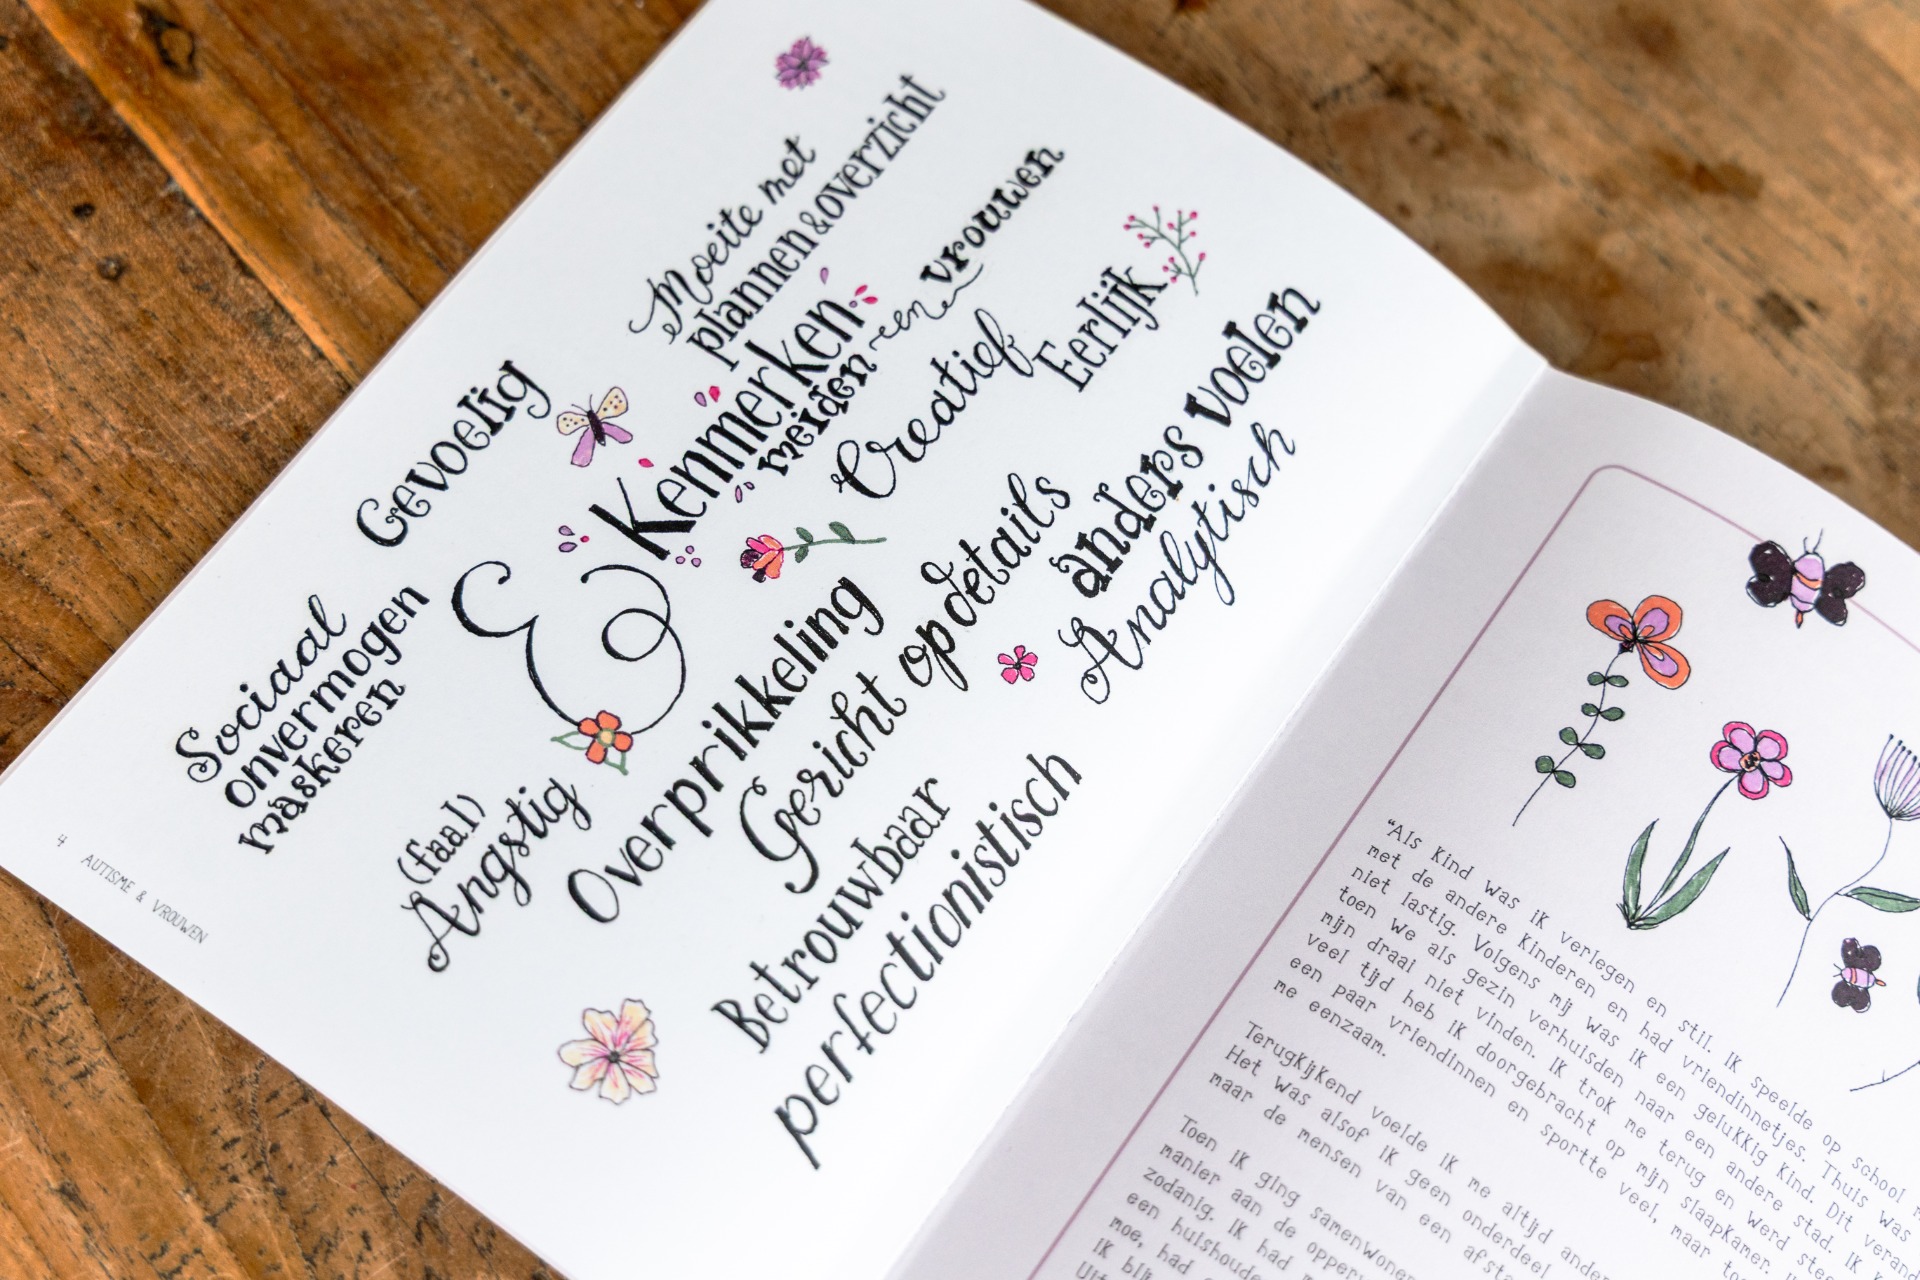 Moeite met
plannen & overzicht
Kenmerken
meiden en vrouwen
Gevoelig
Creatief
Eerlijk
&
Sociaal
onvermogen
maskeren
Overprikkeling
Gericht op details
anders voelen
Analytisch
(faal)
Angstig
Betrouwbaar
perfectionistisch
4 AUTISME & VROUWEN
"Als kind was ik verlegen en stil. Ik speelde op school
met de andere kinderen en had vriendinnetjes. Thuis was
niet lastig. Volgens mij was ik een gelukkig kind. Dit
toen we als gezin verhuisden naar een andere stad. Ik
mijn draai niet vinden. Ik trok me terug en werd
veel tijd heb ik doorgebracht op mijn slaapkamer.
een paar vriendinnen en sportte veel, maar
me eenzaam.
Terugkijkend voelde ik me altijd
Het was alsof ik geen onderdeel
maar de mensen van een
Toen ik ging samenwonen
manier aan de
zodanig. Ik had
een
moe, had
Ik